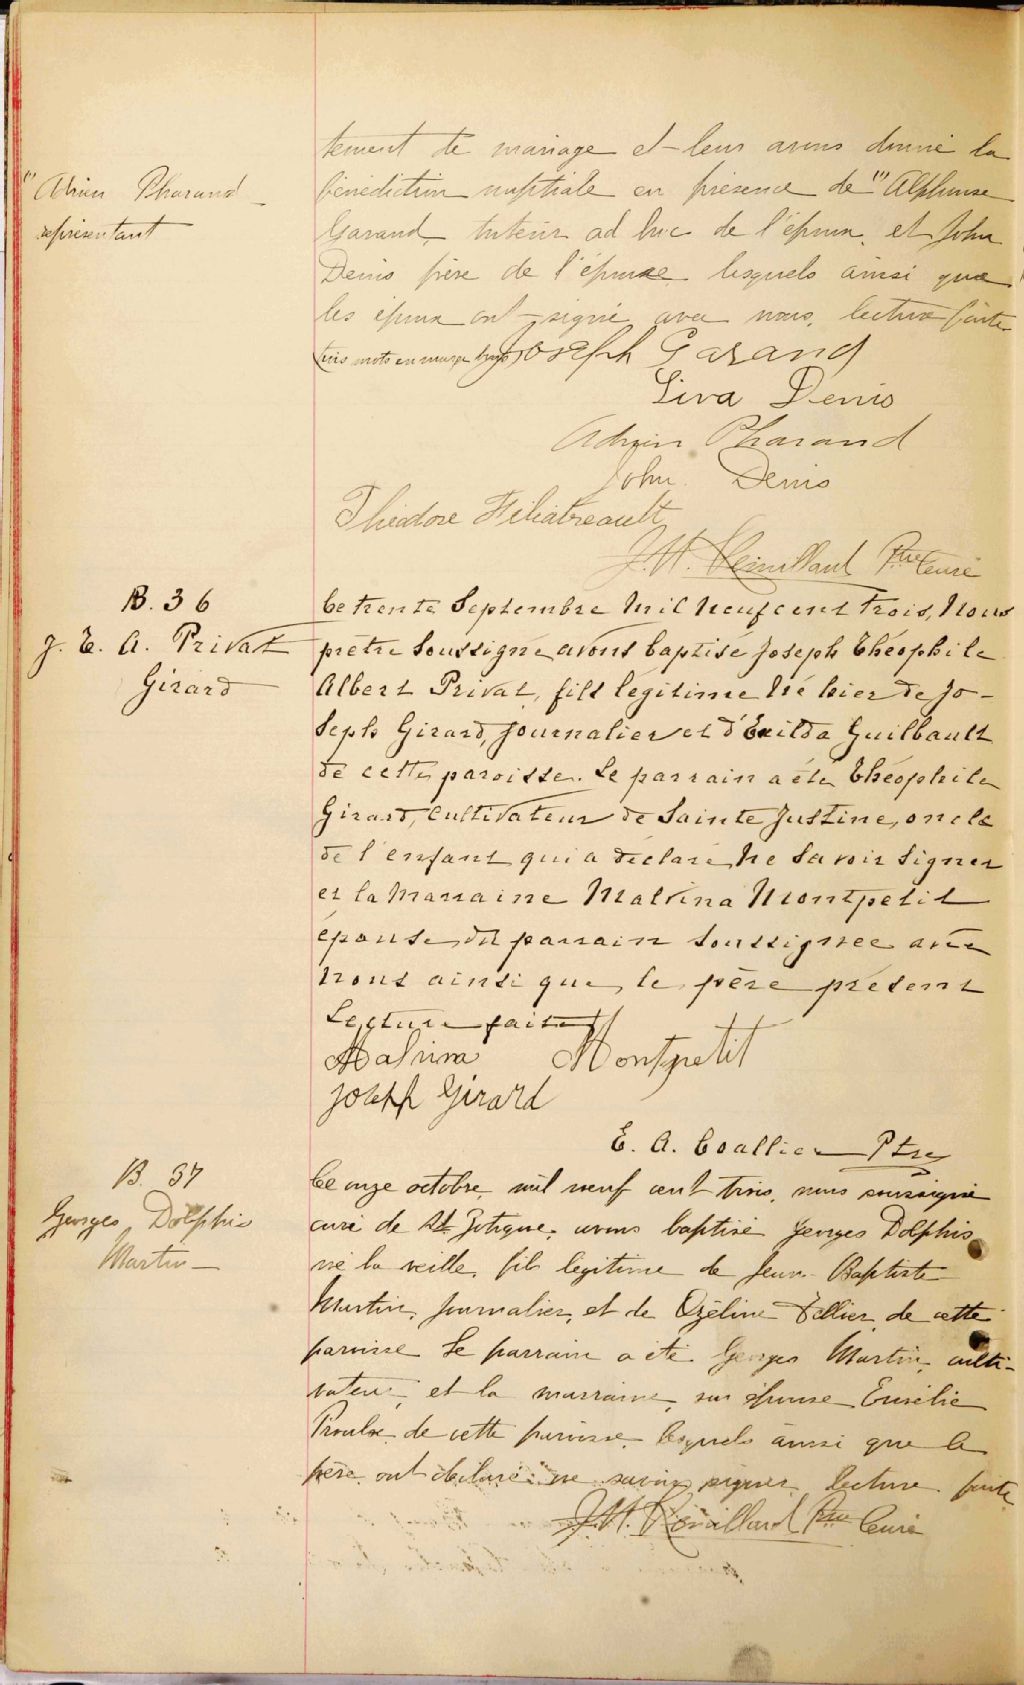 tement de mariage et leur avons donné la
bénédiction nuptiale en présence de " Alphonse
" Adrien Pharand
représentant
Garand, tuteur ad hoc de l'époux, et John
Denis frère de l'épouse lesquels ainsi que
les époux ont signé avec nous, lecture faite
(trois mots en marge bons) Joseph Garand
Liva Denis
Adrien Pharand
John Denis
Théodore Filiatreault
J. M. Rémillard Ptre Curé
B. 36
J. E. A. Privat
Girard
Ce trente Septembre mil neuf cent trois, Nous
prêtre soussigné avons baptisé Joseph Théophile
Albert Privat, fils légitime né hier de Jo-
seph Girard, journalier et d'Exilda Guilbault
de cette paroisse. Le parrain a été Théophile
Girard, cultivateur de Sainte Justine, oncle
de l'enfant qui a déclaré ne savoir signer
et la marraine Malvina Montpetit
épouse du parrain soussignée avec
nous ainsi que le père présent
Lecture faite
Malvina Montpetit
Joseph Girard
E. A. Coallier Ptre
B. 37
Georges Dolphis
Martin
Ce onze octobre, mil neuf cent trois, nous soussigné
curé de St. Zotique, avons baptisé Georges Dolphis
né la veille, fils légitime de Jean-Baptiste
Martin, journalier, et de Ozéline Tellier de cette
paroisse Le parrain a été Georges Martin, culti-
vateur, et la marraine, son épouse Eusélie
Proulx de cette paroisse, lesquels ainsi que le
père ont déclaré ne savoir signer, lecture faite
J. M. Rémillard Ptre Curé